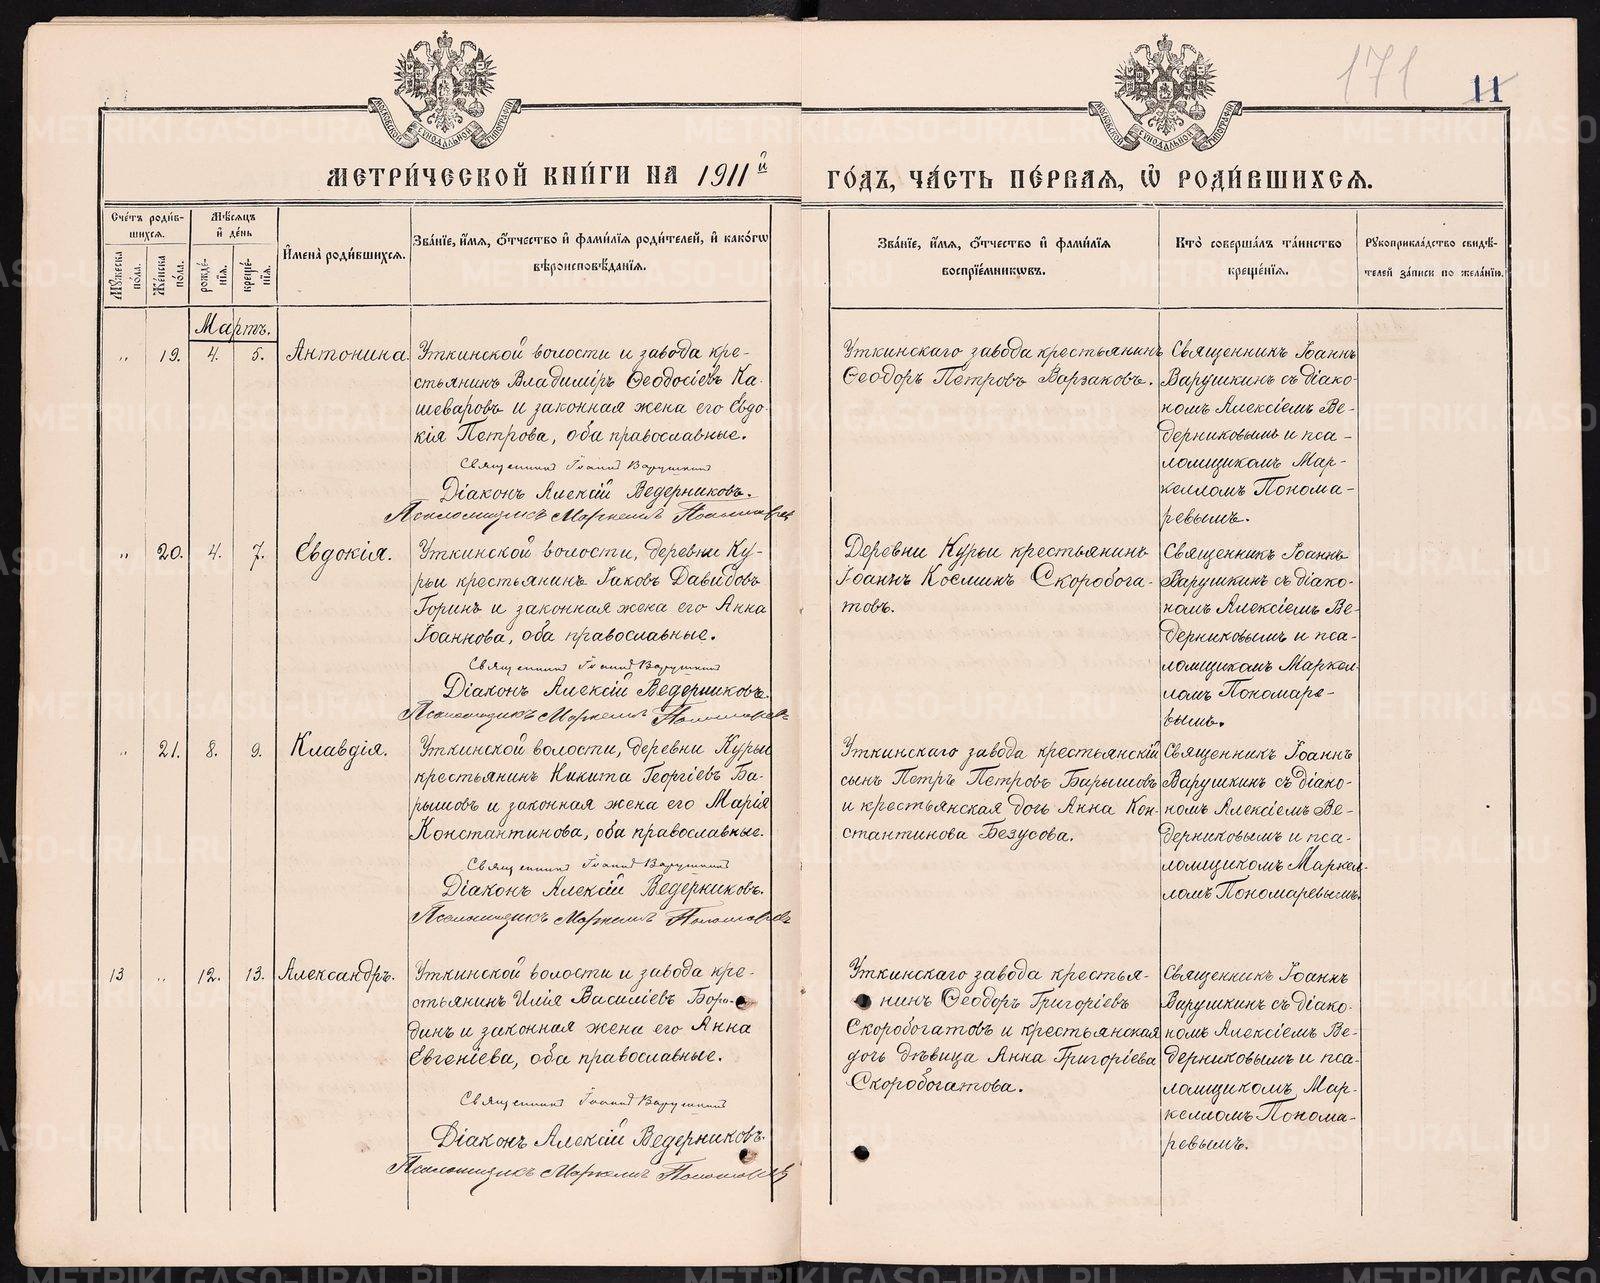 171
11
МЕТРИ́ЧЕСКОЙ КНИ́ГИ НА 1911й ГО́ДЪ, ЧА́СТЬ ПЕ́РВАЯ, Ѡ҆ РОДИ́ВШИХСЯ.
МОСКОВСКОЙ СѴНОДАЛЬНОЙ ТИПОГРАФІИ
МОСКОВСКОЙ СѴНОДАЛЬНОЙ ТИПОГРАФІИ
Сче́тъ роди́в-
шихся.
Мꙋ́жеска
по́ла.
Же́нска
по́ла.
Мѣ́сяцъ
и҆ де́нь
рожде́-
нїя.
креще́-
нїя.
И҆мена̀ роди́вшихся.
Зва́нїе, и҆́мя, ѻ҆́тчество и҆ фами́лїя роди́телей, и҆ како́гѡ
вѣроисповѣ́данїя.
Зва́нїе, и҆́мя, ѻ҆́тчество и҆ фами́лїя
воспрїе́мникѡвъ.
Кто̀ соверша́лъ та́инство
креще́нїя.
Рꙋкоприкла́дство свидѣ́-
телей за́писи по жела́нїю.
Мартъ.
" 19. 4. 5. Антонина.
Уткинской волости и завода кре-
стьянинъ Владиміръ Ѳеодосіевъ Ка-
шеваровъ и законная жена его Евдо-
кія Петрова, оба православные.
Священникъ Іоаннъ Варушкинъ
Діаконъ Алексій Ведерниковъ.
Псаломщикъ Маркеллъ Пономаревъ
Уткинскаго завода крестьянинъ
Ѳеодоръ Петровъ Варзаковъ.
Священникъ Іоаннъ
Варушкинъ съ діако-
номъ Алексіемъ Ве-
дерниковымъ и пса-
ломщикомъ Мар-
келломъ Понома-
ревымъ.
" 20. 4. 7. Евдокія.
Уткинской волости, деревни Ку-
рьи крестьянинъ Іаковъ Давидовъ
Горинъ и законная жена его Анна
Іоаннова, оба православные.
Священникъ Іоаннъ Варушкинъ
Діаконъ Алексій Ведерниковъ.
Псаломщикъ Маркеллъ Пономаревъ
Деревни Курьи крестьянинъ
Іоаннъ Косминъ Скоробога-
товъ.
Священникъ Іоаннъ
Варушкинъ съ діако-
номъ Алексіемъ Ве-
дерниковымъ и пса-
ломщикомъ Маркел-
ломъ Пономаре-
вымъ.
" 21. 8. 9. Клавдія.
Уткинской волости, деревни Курьи
крестьянинъ Никита Георгіевъ Ба-
рышовъ и законная жена его Марія
Константинова, оба православные.
Священникъ Іоаннъ Варушкинъ
Діаконъ Алексій Ведерниковъ.
Псаломщикъ Маркеллъ Пономаревъ
Уткинскаго завода крестьянскій
сынъ Петръ Петровъ Барышовъ
и крестьянская дочь Анна Кон-
стантинова Безусова.
Священникъ Іоаннъ
Варушкинъ съ діако-
номъ Алексіемъ Ве-
дерниковымъ и пса-
ломщикомъ Маркел-
ломъ Пономаревымъ.
13 " 12. 13. Александръ.
Уткинской волости и завода кре-
стьянинъ Илія Василіевъ Боро-
динъ и законная жена его Анна
Евгеніева, оба православные.
Священникъ Іоаннъ Варушкинъ
Діаконъ Алексій Ведерниковъ.
Псаломщикъ Маркеллъ Пономаревъ
Уткинскаго завода крестья-
нинъ Ѳеодоръ Григоріевъ
Скоробогатовъ и крестьянская
дочь дѣвица Анна Григоріева
Скоробогатова.
Священникъ Іоаннъ
Варушкинъ съ діако-
номъ Алексіемъ Ве-
дерниковымъ и пса-
ломщикомъ Мар-
келломъ Понома-
ревымъ.
METRIKI.GASO-URAL.RU